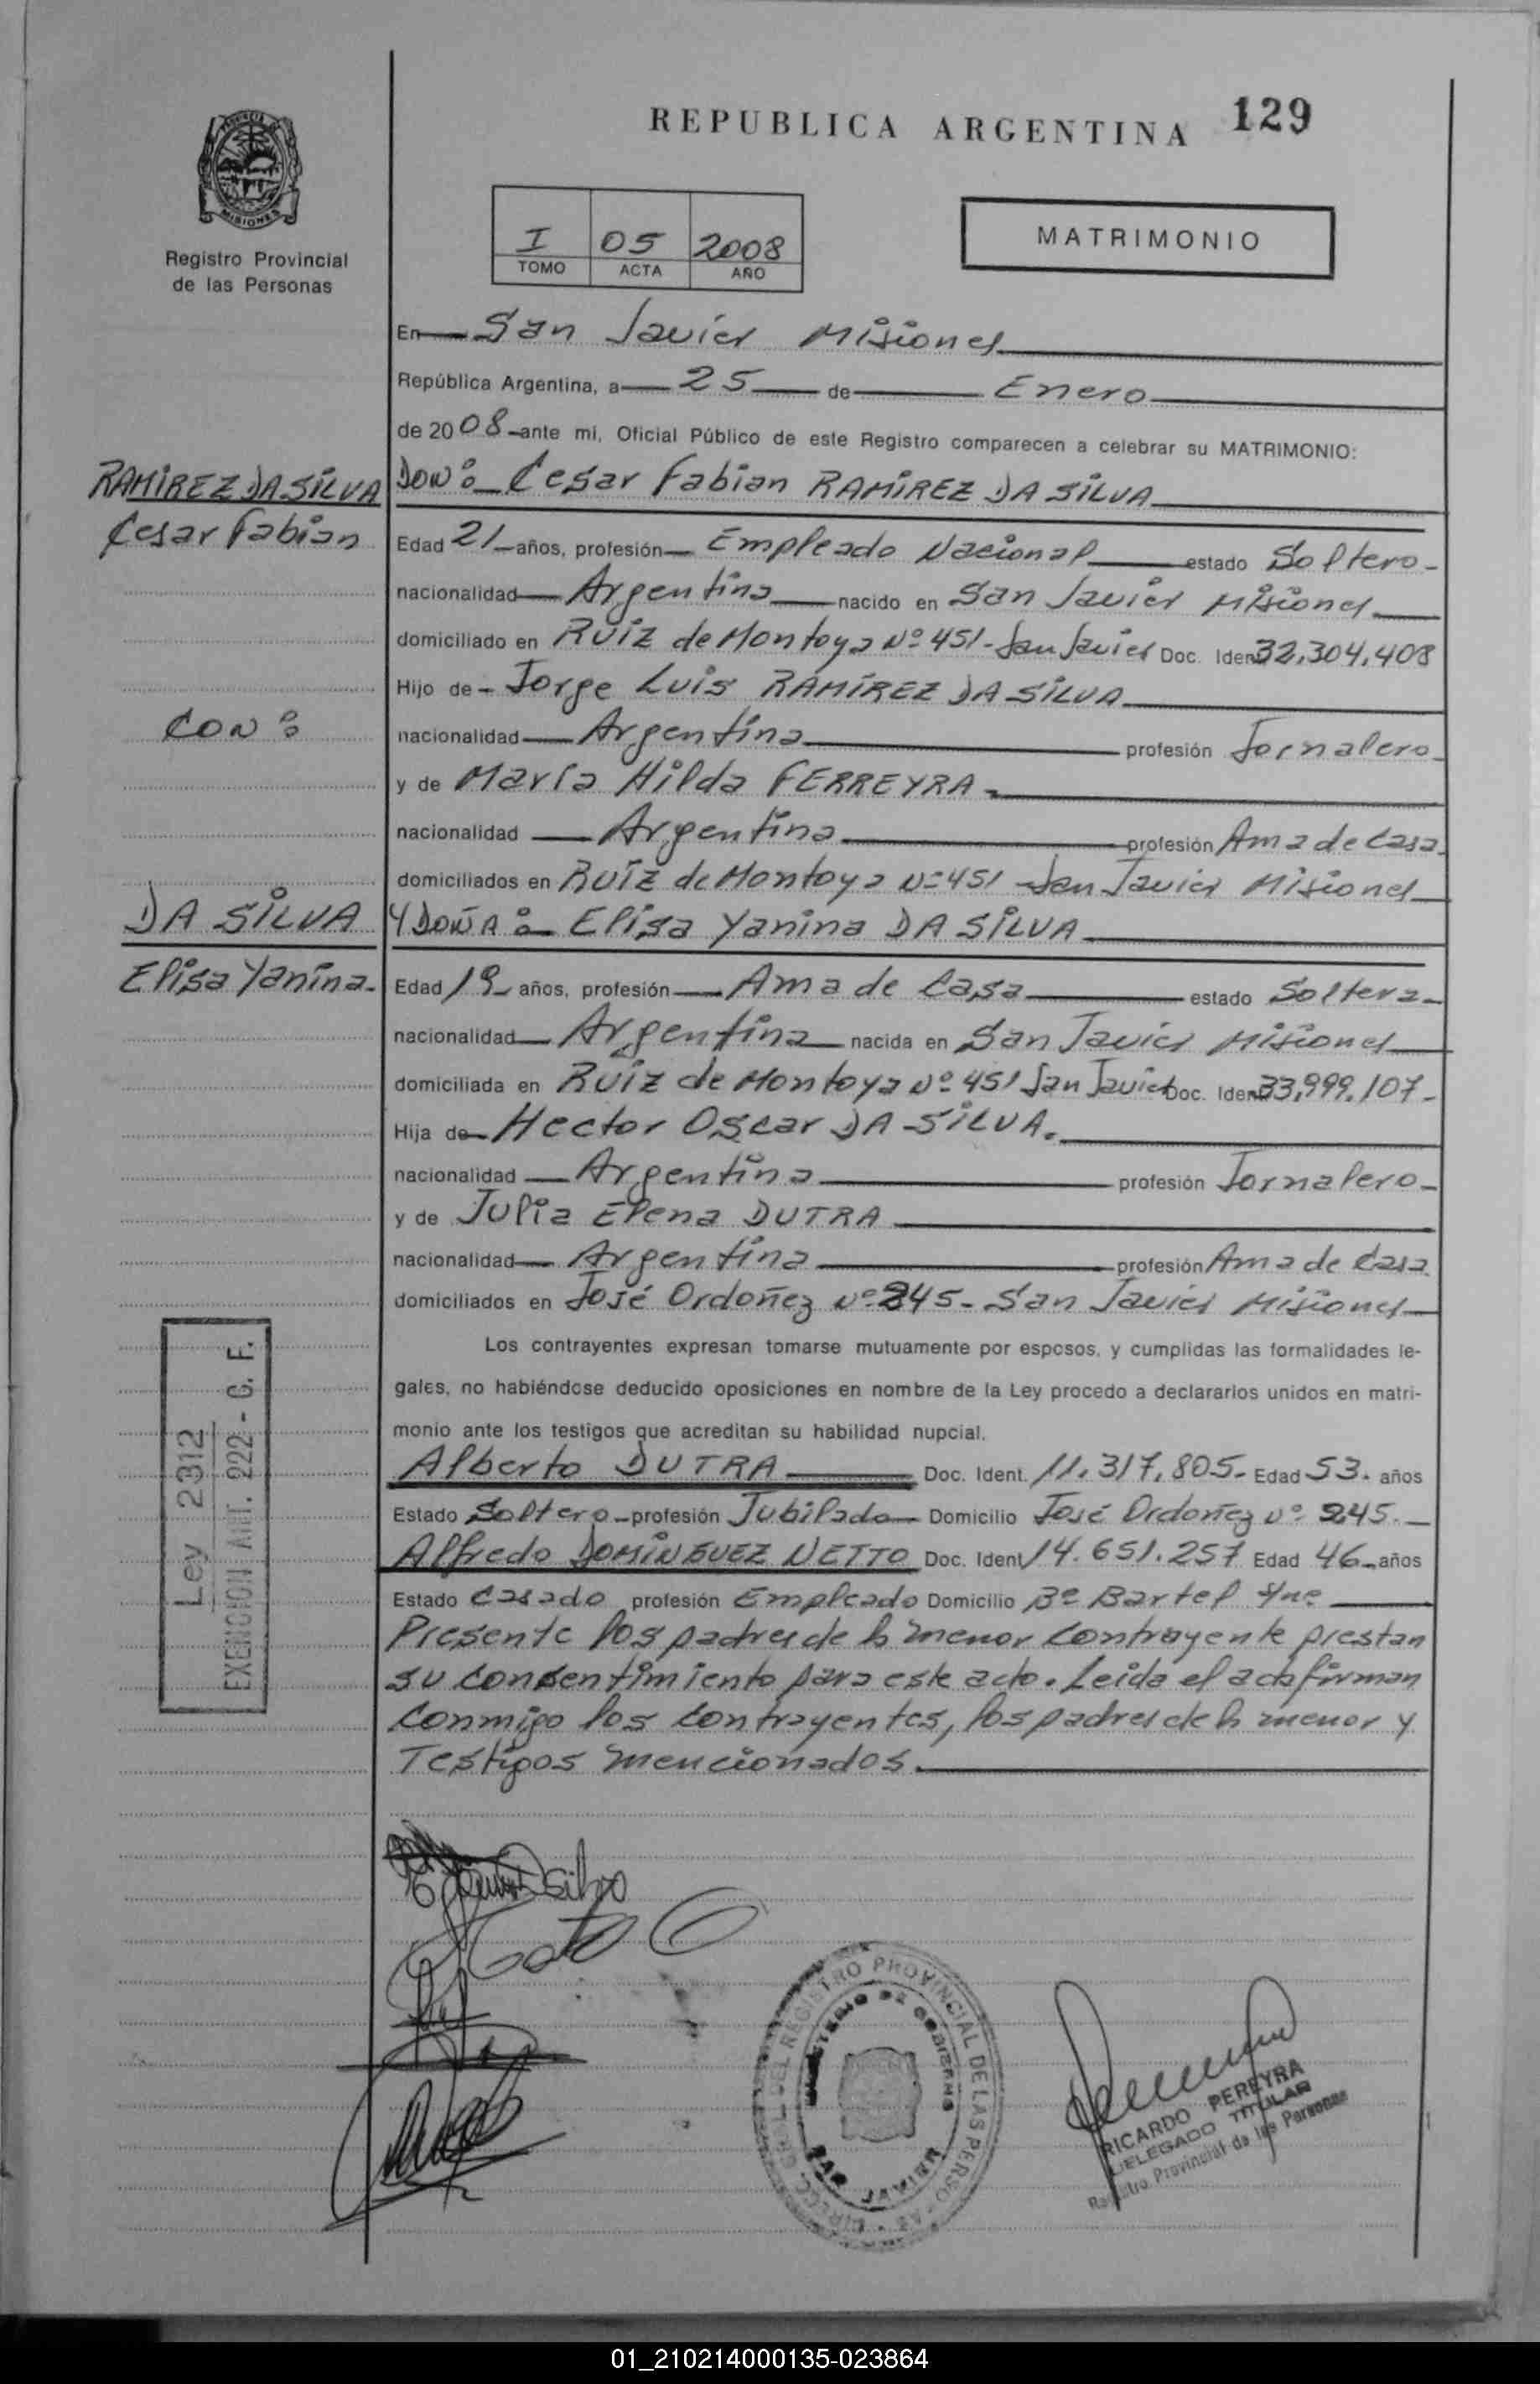 REPUBLICA ARGENTINA 129
MISIONES
Registro Provincial
de las Personas
I 05 2008
TOMO ACTA AÑO
MATRIMONIO
En San Javier Misiones
República Argentina, a 25 de Enero
de 2008 ante mi, Oficial Público de este Registro comparecen a celebrar su MATRIMONIO:
RAMIREZ DA SILVA
Cesar Fabian
CON:
DA SILVA
Elisa Yanina.
DON: Cesar Fabian RAMÍREZ DA SILVA
Edad 21 años, profesión Empleado Nacional estado Soltero
nacionalidad Argentina nacido en San Javier Misiones
domiciliado en RUIZ de Montoya Nº 451- San Javier Doc. Iden 32,304,408
Hijo de Jorge Luis RAMÍREZ DA SILVA
nacionalidad Argentina profesión Jornalero
y de María Hilda FERREYRA
nacionalidad Argentina profesión Ama de Casa
domiciliados en RUIZ de Montoya Nº 451 San Javier Misiones
Y DOÑA: Elisa Yanina DA SILVA
Edad 19 años, profesión Ama de Casa estado Soltera
nacionalidad Argentina nacida en San Javier Misiones
domiciliada en RUIZ de Montoya Nº 451 San Javier Doc. Iden 33,999.107
Hija de Hector Oscar DA SILVA.
nacionalidad Argentina profesión Jornalero
y de Julia Elena DUTRA
nacionalidad Argentina profesión Ama de Casa
domiciliados en José Ordoñez Nº 245 - San Javier Misiones
Los contrayentes expresan tomarse mutuamente por esposos, y cumplidas las formalidades le-
gales, no habiéndose deducido oposiciones en nombre de la Ley procedo a declararlos unidos en matri-
monio ante los testigos que acreditan su habilidad nupcial.
Alberto DUTRA Doc. Ident. 11.317.805 Edad 53. años
Estado Soltero profesión Jubilado Domicilio José Ordoñez Nº 245.
Alfredo DOMINGUEZ NETTO Doc. Ident 14.651.257 Edad 46 años
Estado Casado profesión Empleado Domicilio Bº Bartel
Presente los padres de la menor contrayente prestan
su consentimiento para este acto. Leida el acta firman
conmigo los contrayentes, los padres de la menor y
Testigos mencionados.
Ley 2312
EXENCION ART. 222 - C. F.
DIRECC. GRAL DEL REGISTRO PROVINCIAL DE LAS PERSONAS
MINISTERIO DE GOBIERNO
SAN JAVIER
RICARDO PEREYRA
DELEGADO TITULAR
Registro Provincial de las Personas
01_210214000135-023864